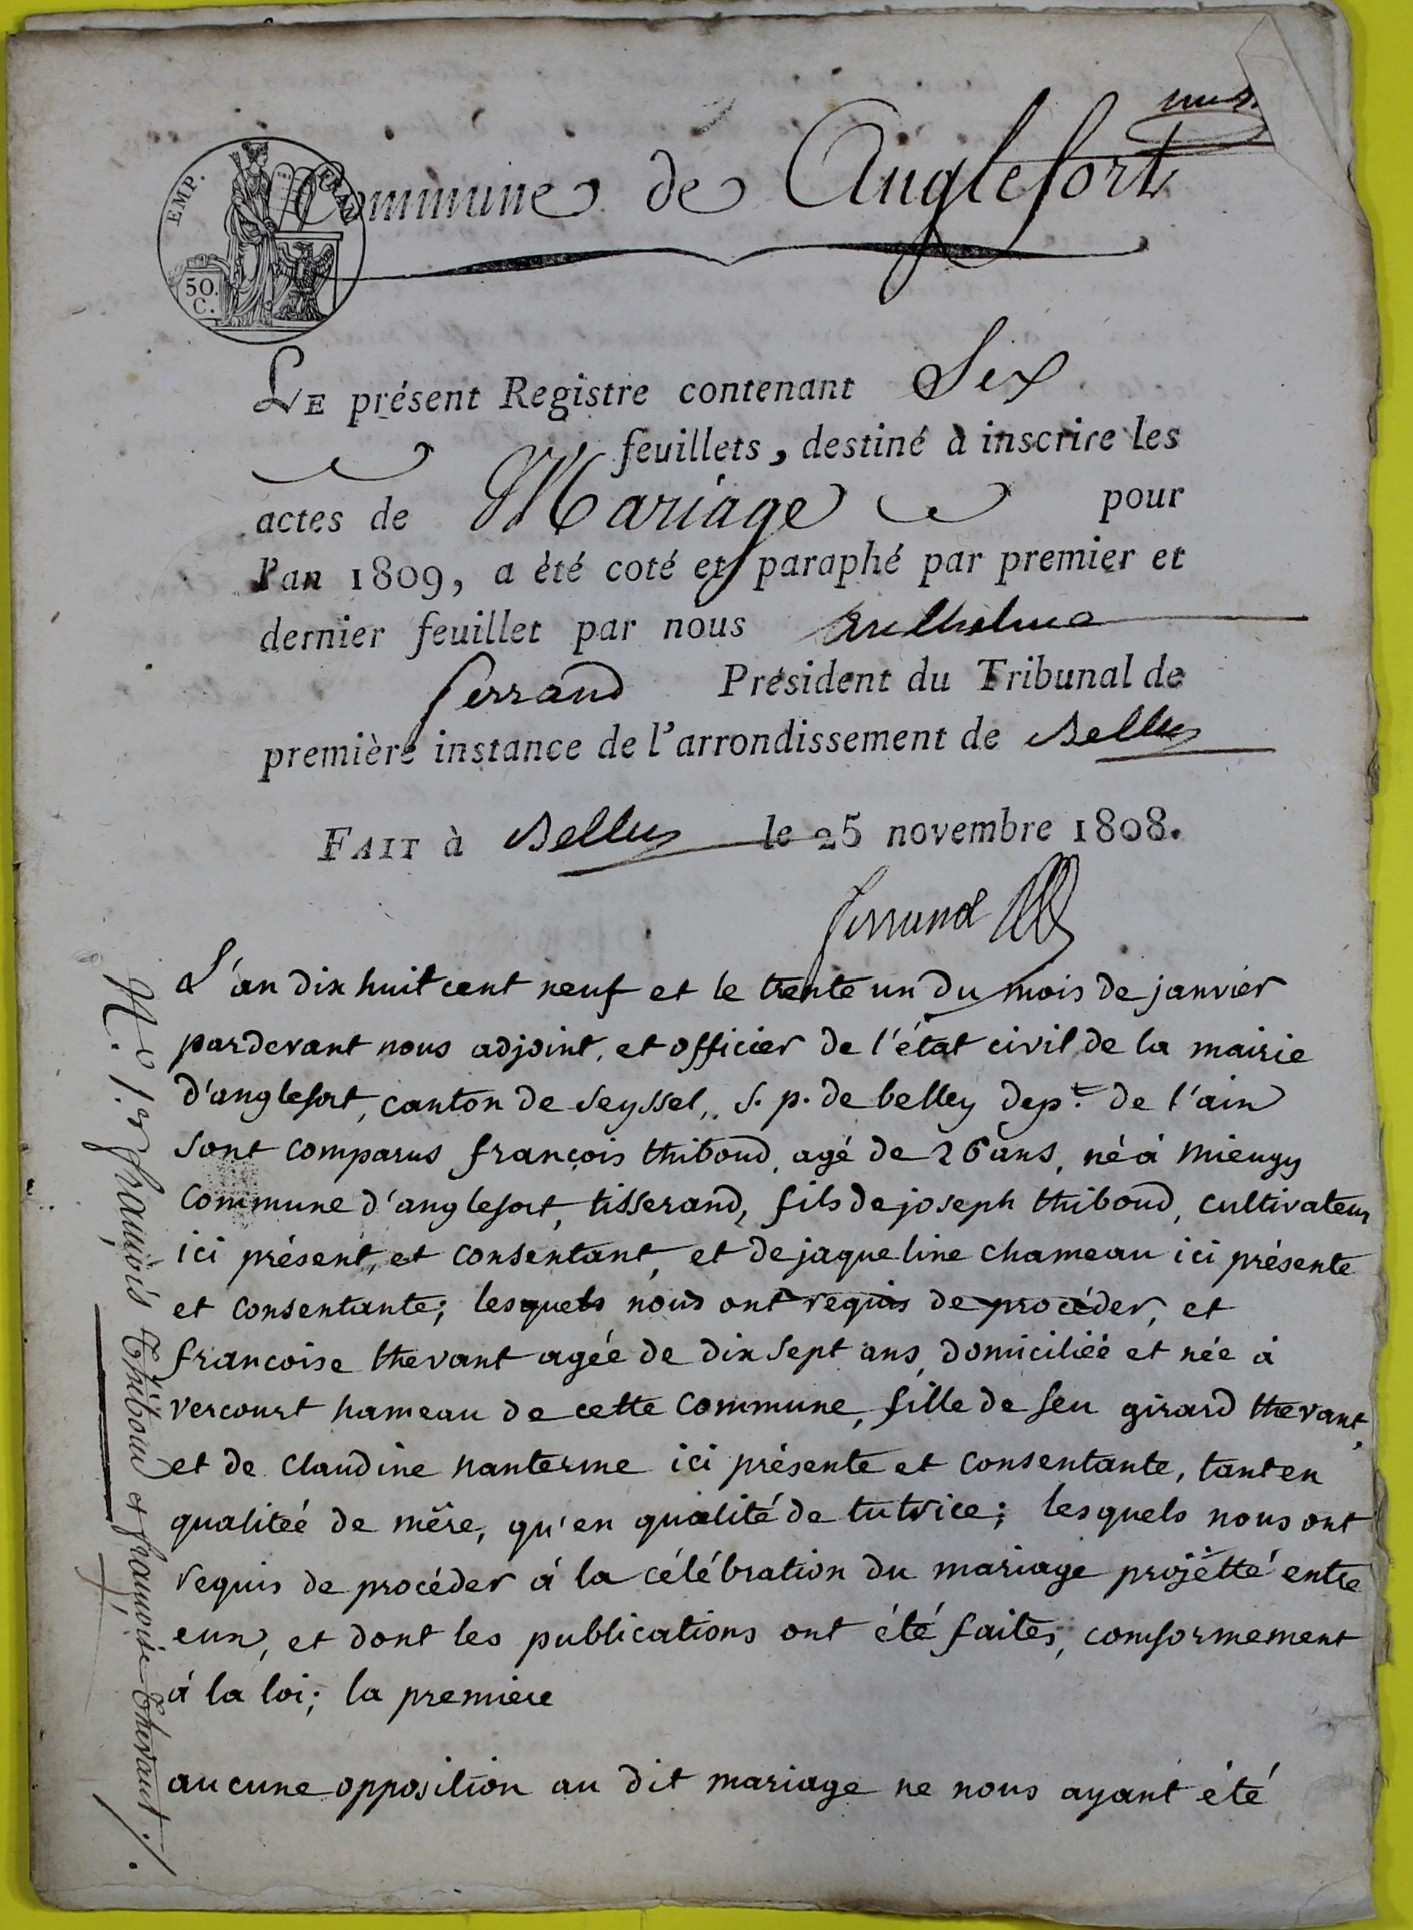 Commune de Anglefort
EMP. FRAN
50.
C.
LE présent Registre contenant Six
feuillets, destiné à inscrire les
actes de Mariage pour
l'an 1809, a été coté et paraphé par premier et
dernier feuillet par nous Anthelme
ferrand Président du Tribunal de
première instance de l'arrondissement de Belley
FAIT à Belley le 25 novembre 1808.
ferrand
L'an dix huit cent neuf et le trente un du mois de janvier
pardevant nous adjoint, et officier de l'état civil de la mairie
d'anglefort, canton de Seyssel, s. p. de belley dept. de l'ain
sont comparus françois thiboud, agé de 26 ans, né à mieugy
commune d'anglefort, tisserand, fils de joseph thiboud, cultivateur
ici présent, et consentant, et de jaqueline chameau ici présente
et consentante; lesquels nous ont requis de procéder, et
francoise thevant agée de dix sept ans, domiciliéé et née à
vercourt hameau de cette commune, fille de feu girard thevant,
et de claudine nanterme ici présente et consentante, tant en
qualiteé de mère, qu'en qualité de tutrice; lesquels nous ont
requis de procéder à la célébration du mariage projetté entre
eux, et dont les publications ont été faites, comformement
à la loi; la premiere
aucune opposition au dit mariage ne nous ayant été
N.o 1.er françois Thiboud et françoise Thevant /.